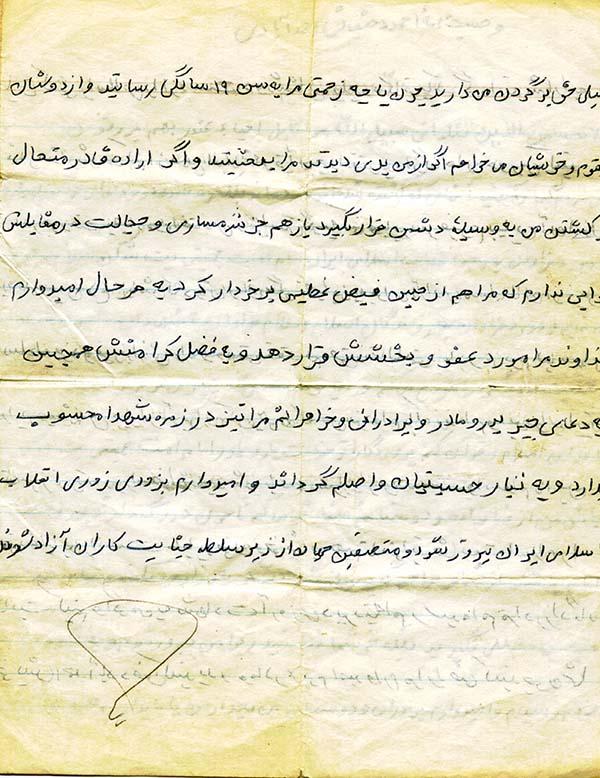 خیلی حق بر گردن من دارید چون با چه زحمتی مرا به سن ۱۹ سالگی رساندید و از دوستان
قوم و خویشان می خواهم اگر از من بدی دیدند مرا ببخشند و اگر اراده قادر متعال
بر کشتن من به وسیله دشمن قرار بگیرد باز هم جز شرمساری و خجالت در مقابلش
جوابی ندارم که مرا هم از چنین فیض عظیمی برخوردار کرد به هر حال امیدوارم
خداوند مرا مورد عفو و بخشش قرار دهد و به فضل کرامتش همچنین
به دعای خیر پدر و مادر و برادران و خواهرانم مرا نیز در زمره شهدا محسوب
دارد و به حسینیان واصلم گرداند و امیدوارم بزودی زوری انقلاب
اسلامی ایران پیروز شود و مستضعفین جهان از زیر سلطه جنایت کاران آزاد شوند